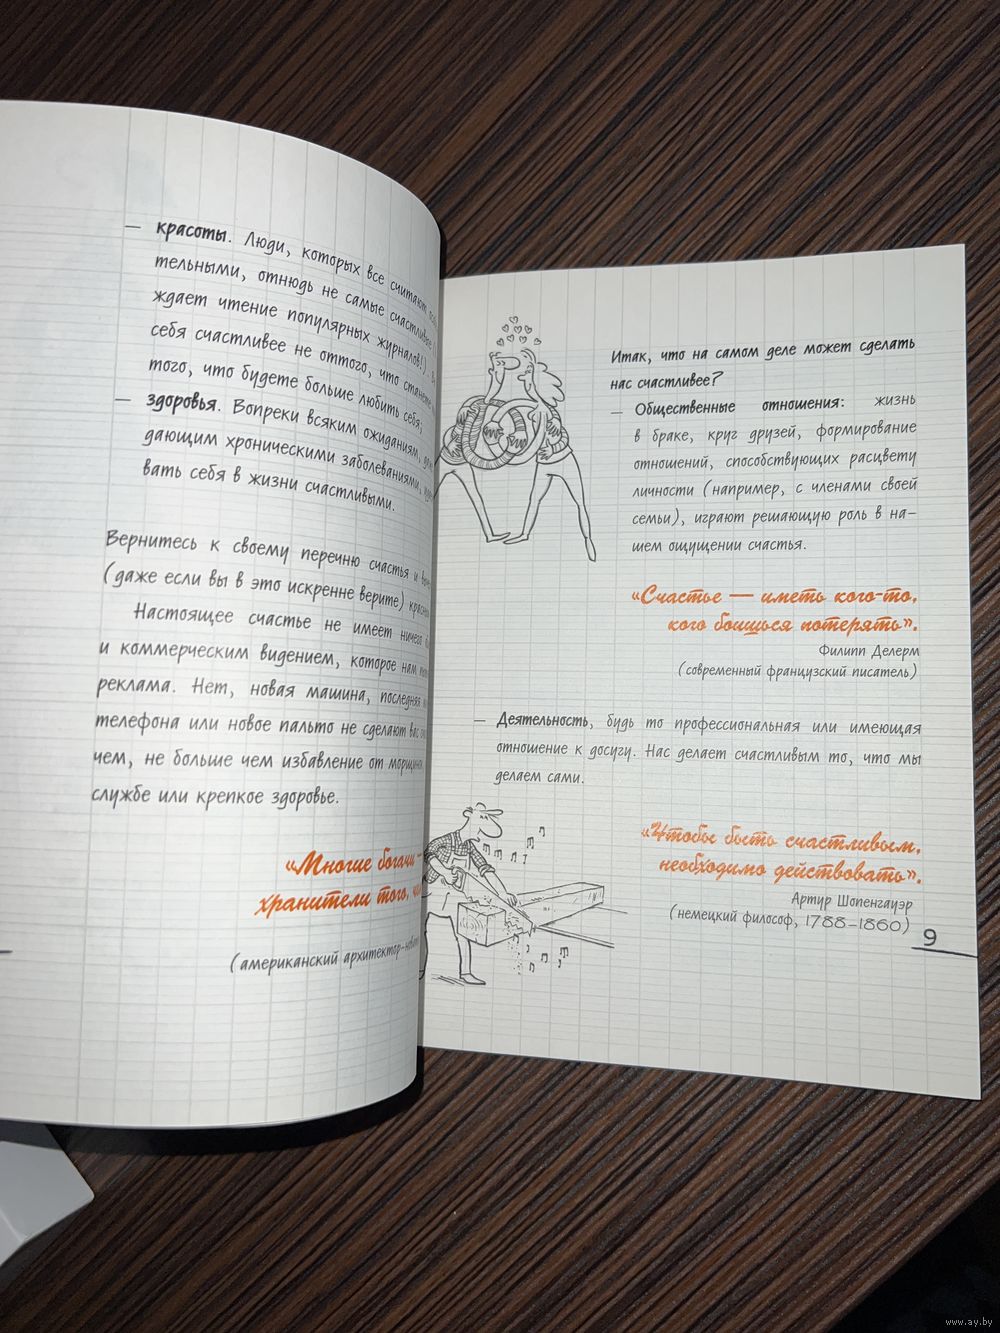 — красоты. Люди, которых все считают
тельными, отнюдь не самые счастливые
ждает чтение популярных журналов!).
себя счастливее не оттого, что станете
того, что будете больше любить себя;
— здоровья. Вопреки всяким ожиданиям,
дающим хроническими заболеваниями,
вать себя в жизни счастливыми.
Вернитесь к своему перечню счастья и
(даже если вы в это искренне верите)
Настоящее счастье не имеет ничего
и коммерческим видением, которое нам
реклама. Нет, новая машина, последняя
телефона или новое пальто не сделают вас
чем, не больше чем избавление от морщин,
службе или крепкое здоровье.
«Многие богачи —
хранители того,
(американский архитектор-
Итак, что на самом деле может сделать
нас счастливее?
— Общественные отношения: жизнь
в браке, круг друзей, формирование
отношений, способствующих расцвету
личности (например, с членами своей
семьи), играют решающую роль в на-
шем ощущении счастья.
«Счастье — иметь кого-то,
кого боишься потерять».
Филипп Делерм
(современный французский писатель)
— Деятельность, будь то профессиональная или имеющая
отношение к досугу. Нас делает счастливым то, что мы
делаем сами.
«Чтобы быть счастливым,
необходимо действовать».
Артур Шопенгауэр
(немецкий философ, 1788–1860)
9
www.ay.by